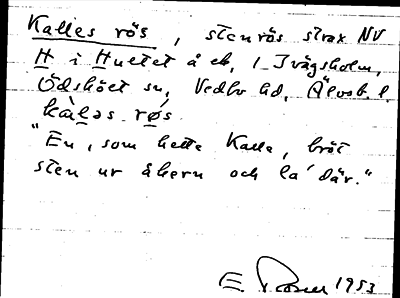 Kalles rös, stenrös strax NV
H i Hultet å ek, 1 Ivågsholm,
Ödsköet sn, Vedbo hd, Älvsb. l.
kàləs rǿs
"En, som hette Kalle, bröt
sten ur åkern och la' där."
E. 1953